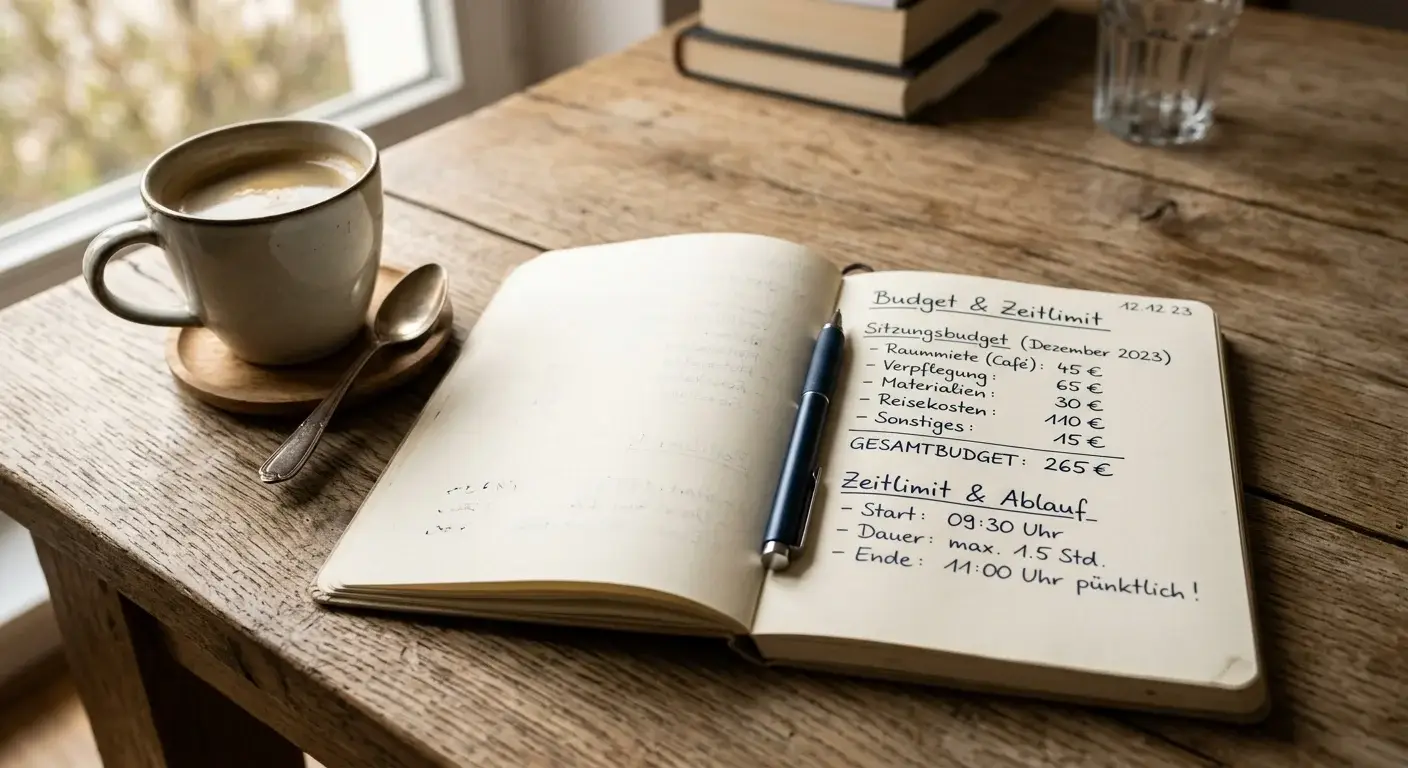 Budget & Zeitlimit 12.12.23
Sitzungsbudget (Dezember 2023)
- Raummiete (Café): 45 €
- Verpflegung: 65 €
- Materialien: 30 €
- Reisekosten: 110 €
- Sonstiges: 15 €
GESAMTBUDGET: 265 €
Zeitlimit & Ablauf
- Start: 09:30 Uhr
- Dauer: max. 1.5 Std.
- Ende: 11:00 Uhr pünktlich!